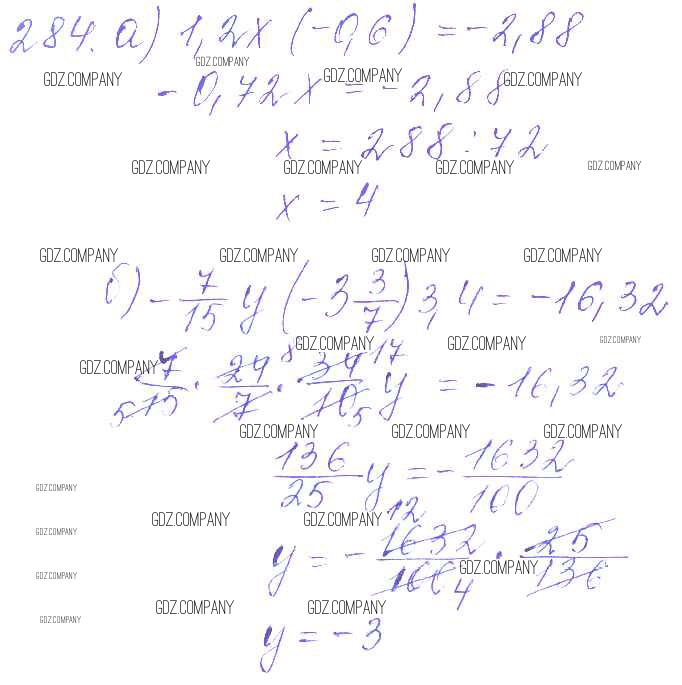 284. а) 1,2x (-0,6) = -2,88
GDZ.COMPANY
GDZ.COMPANY GDZ.COMPANY GDZ.COMPANY
-0,72x = -2,88
x = 288 : 72
GDZ.COMPANY GDZ.COMPANY GDZ.COMPANY GDZ.COMPANY
x = 4
GDZ.COMPANY GDZ.COMPANY GDZ.COMPANY GDZ.COMPANY
б) - 7/15 y (-3 3/7) 3,4 = -16,32
GDZ.COMPANY GDZ.COMPANY GDZ.COMPANY
GDZ.COMPANY
7/15 5 · 24 8/7 · 34 17/10 5 y = -16,32
GDZ.COMPANY GDZ.COMPANY GDZ.COMPANY
136/25 y = - 1632/100
GDZ.COMPANY
GDZ.COMPANY GDZ.COMPANY
GDZ.COMPANY
y = - 1632 12/100 4 · 25/136
GDZ.COMPANY
GDZ.COMPANY
GDZ.COMPANY GDZ.COMPANY
GDZ.COMPANY
y = -3